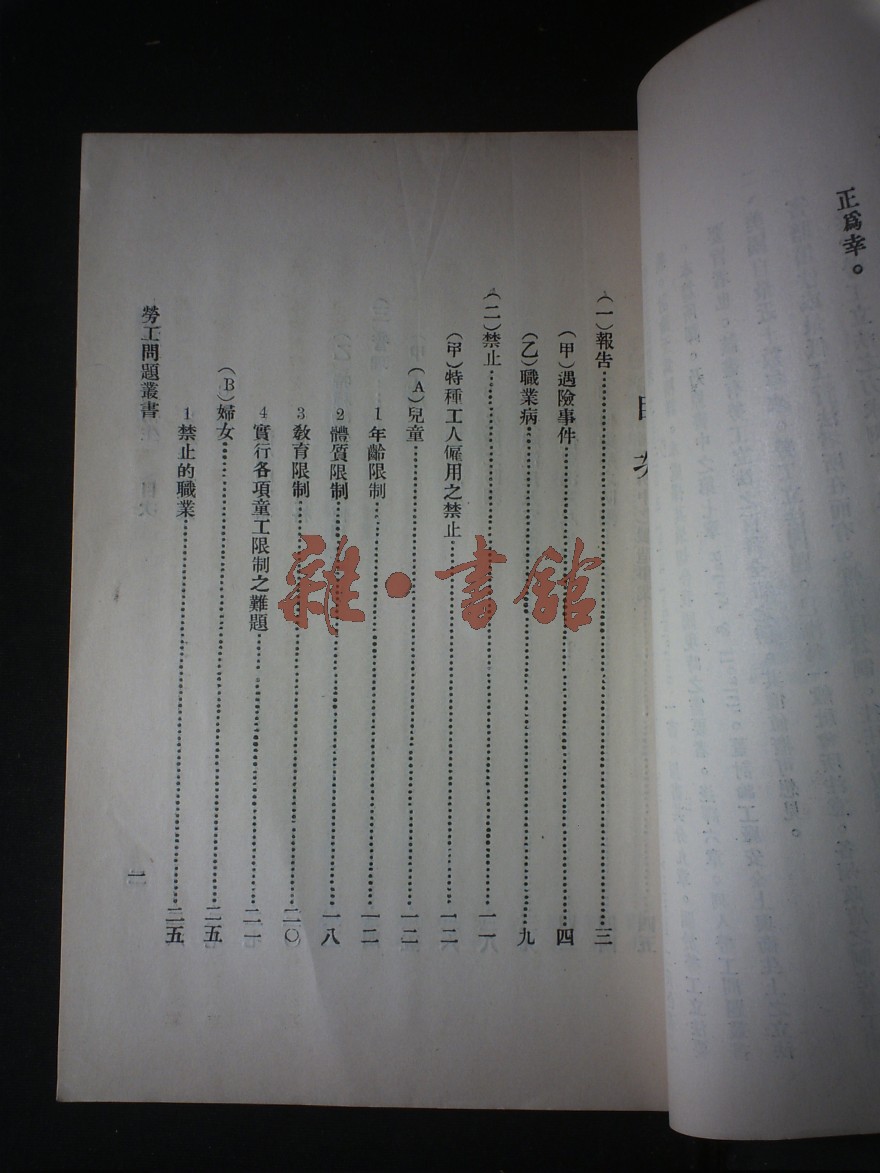 正爲幸。
(一)報告……三
(甲)遇險事件……四
(乙)職業病……九
(二)禁止……一一
(甲)特種工人僱用之禁止……一二
(A)兒童……一二
1 年齡限制……一二
2 體質限制……一八
3 敎育限制……二〇
4 實行各項童工限制之難題……二一
(B)婦女……二五
1 禁止的職業……二五
勞工問題叢書
一
雜·書館